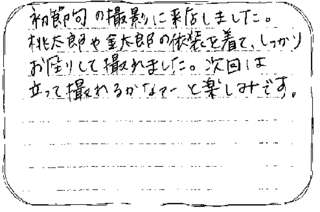 初節句の撮影に来店しました。
桃太郎や金太郎の依装を着て、しっかり
お座りして撮れました。次回は
立って撮れるかなぁーと楽しみです。